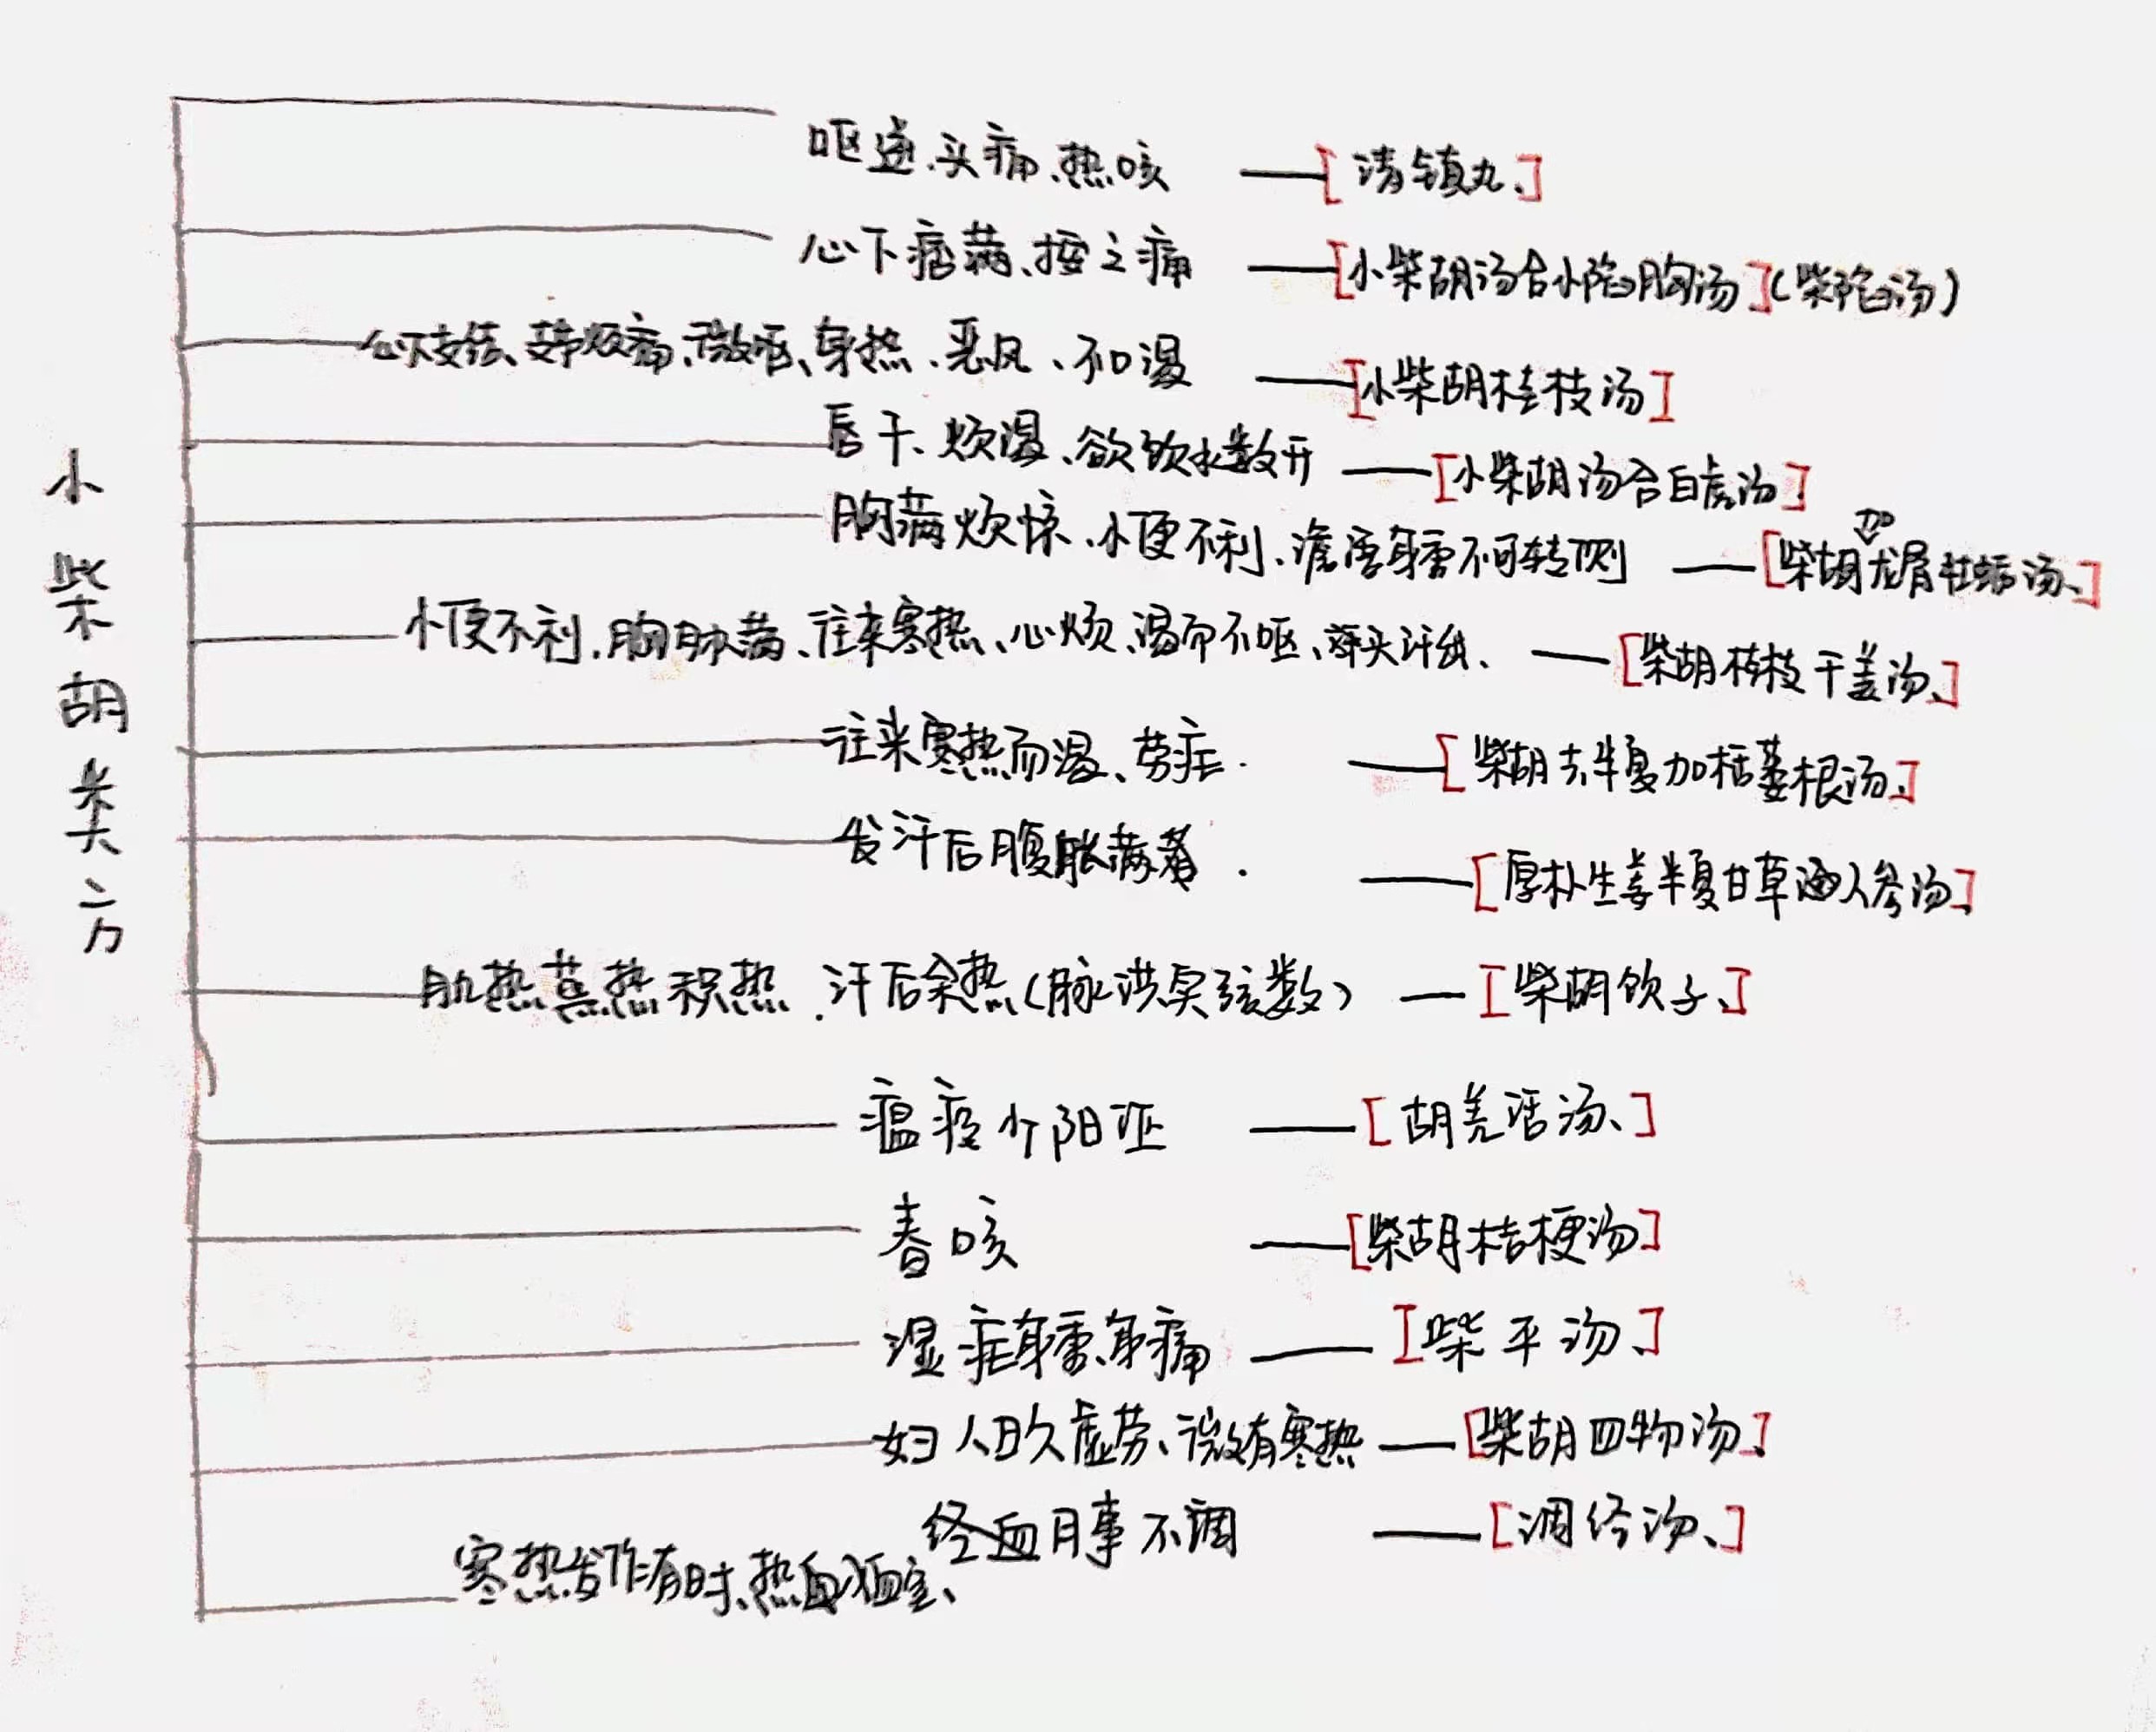 小柴胡类方
呕逆、头痛、热咳 [清镇丸、]
心下痞满、按之痛 [小柴胡汤合小陷胸汤](柴陷汤)
心下支结、支节烦痛、微呕、身热、恶风、不口渴 [小柴胡桂枝汤]
唇干、烦渴、欲饮水数升 [小柴胡汤合白虎汤]
胸满烦惊、小便不利、谵语身重不可转侧 [柴胡加龙骨牡蛎汤、]
小便不利、胸胁满、往来寒热、心烦、渴而不呕、头汗出、 [柴胡桂枝干姜汤、]
往来寒热而渴、劳疟. [柴胡去半夏加栝蒌根汤、]
发汗后腹胀满者. [厚朴生姜半夏甘草人参汤]
肌热蒸热积热、汗后余热(脉洪实弦数) [柴胡饮子、]
瘟疫少阳证 [胡羌活汤、]
春咳 [柴胡桔梗汤]
湿疟身重、身痛 [柴平汤、]
妇人日久虚劳、微有寒热 [柴胡四物汤]
经血月事不调 [调经汤、]
寒热发作有时、热血室、